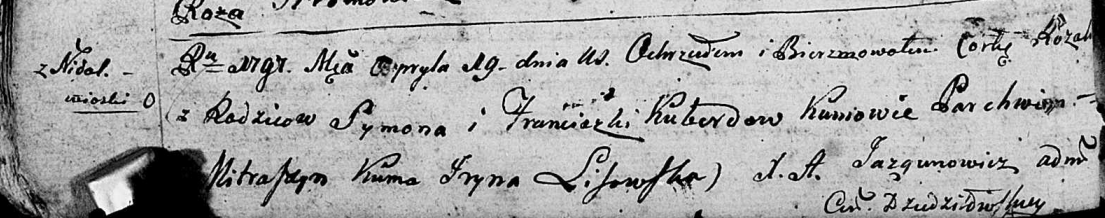 Roza
z Nidal.
wioski 0
Rꝫ 1797. Mca Apryla 19. dnia Us. Ochrzciłem i Bierzmowałem Corkę Rozal
z Rodzicow Symona i Franciszki Kuberdow Kumowie Parchwim
Mitraszyn Kuma Iryna Lisowska) X. A. Jazgunowicz adm
Cer. Dziedziłowskiey